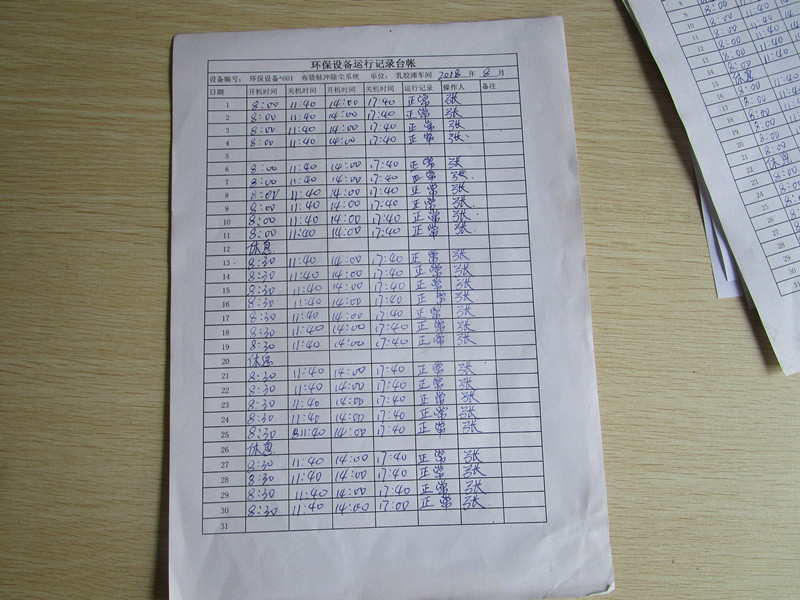 环保设备运行记录台帐
设备编号: 环保设备*001 布袋脉冲除尘系统 单位: 乳胶漆车间 2018 年 8 月
日期 开机时间 关机时间 开机时间 关机时间 运行记录 操作人 备注
1 8:00 11:40 14:00 17:40 正常 张
2 8:00 11:40 14:00 17:40 正常 张
3 8:00 11:40 14:00 17:40 正常 张
4 8:00 11:40 14:00 17:40 正常 张
5
6 8:00 11:40 14:00 17:40 正常 张
7 8:00 11:40 14:00 17:40 正常 张
8 8:00 11:40 14:00 17:40 正常 张
9 8:00 11:40 14:00 17:40 正常 张
10 8:00 11:40 14:00 17:40 正常 张
11 8:00 11:40 14:00 17:40 正常 张
12 休息
13 8:30 11:40 14:00 17:40 正常 张
14 8:30 11:40 14:00 17:40 正常 张
15 8:30 11:40 14:00 17:40 正常 张
16 8:30 11:40 14:00 17:40 正常 张
17 8:30 11:40 14:00 17:40 正常 张
18 8:30 11:40 14:00 17:40 正常 张
19 8:30 11:40 14:00 17:40 正常 张
20 休息
21 8:30 11:40 14:00 17:40 正常 张
22 8:30 11:40 14:00 17:40 正常 张
23 8:30 11:40 14:00 17:40 正常 张
24 8:30 11:40 14:00 17:40 正常 张
25 8:30 11:40 14:00 17:40 正常 张
26 休息
27 8:30 11:40 14:00 17:40 正常 张
28 8:30 11:40 14:00 17:40 正常 张
29 8:30 11:40 14:00 17:40 正常 张
30 8:30 11:40 14:00 17:00 正常 张
31